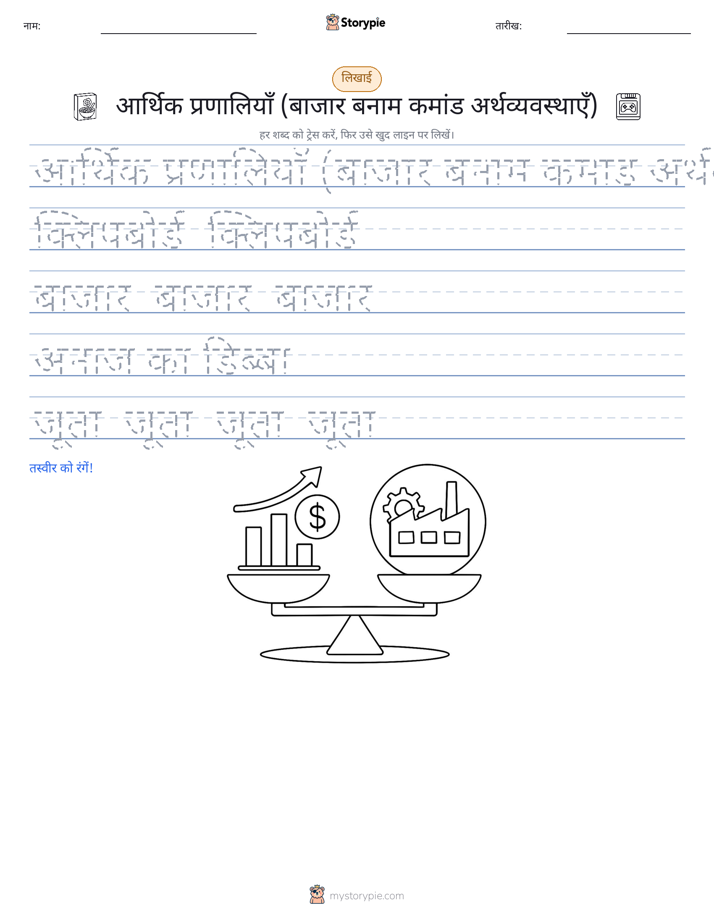 नाम:
Storypie
तारीख:
लिखाई
आर्थिक प्रणालियाँ (बाजार बनाम कमांड अर्थव्यवस्थाएँ)
हर शब्द को ट्रेस करें, फिर उसे खुद लाइन पर लिखें।
आर्थिक प्रणालियाँ (बाजार बनाम कमांड अर्थ
क्लिपबोर्ड क्लिपबोर्ड
बाजार बाजार बाजार
अनाज का डिब्बा
जूता जूता जूता जूता
तस्वीर को रंगें!
$
mystorypie.com